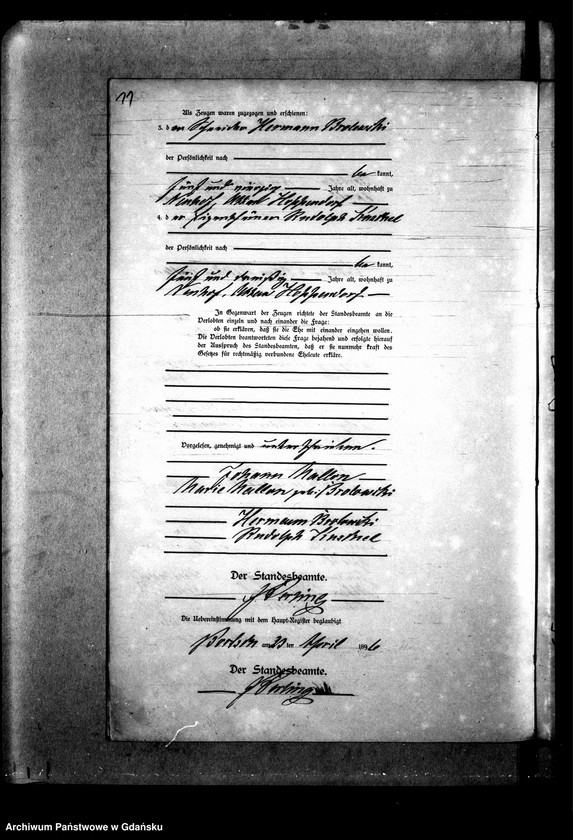 11
Als Zeugen waren zugezogen und erschienen:
3. der Schneider Hermann Brolowski
der Persönlichkeit nach
be kannt,
fünf und vierzig Jahre alt, wohnhaft zu
Neuhof, Hoppendorf
4. der Eigenthümer Rudolph
der Persönlichkeit nach
be kannt,
fünf und dreißig Jahre alt, wohnhaft zu
Neuhof, Hoppendorf
In Gegenwart der Zeugen richtete der Standesbeamte an die
Verlobten einzeln und nach einander die Frage:
ob sie erklären, daß sie die Ehe mit einander eingehen wollen.
Die Verlobten beantworteten diese Frage bejahend und erfolgte hierauf
der Ausspruch des Standesbeamten, daß er sie nunmehr kraft des
Gesetzes für rechtmäßig verbundene Eheleute erkläre.
Vorgelesen, genehmigt und unterschrieben.
Johann
Marie geb. Brolowski
Hermann Brolowski
Rudolph
Der Standesbeamte.
Die Uebereinstimmung mit dem Haupt-Register beglaubigt
am 23 ten April 1896
Der Standesbeamte.
Archiwum Państwowe w Gdańsku